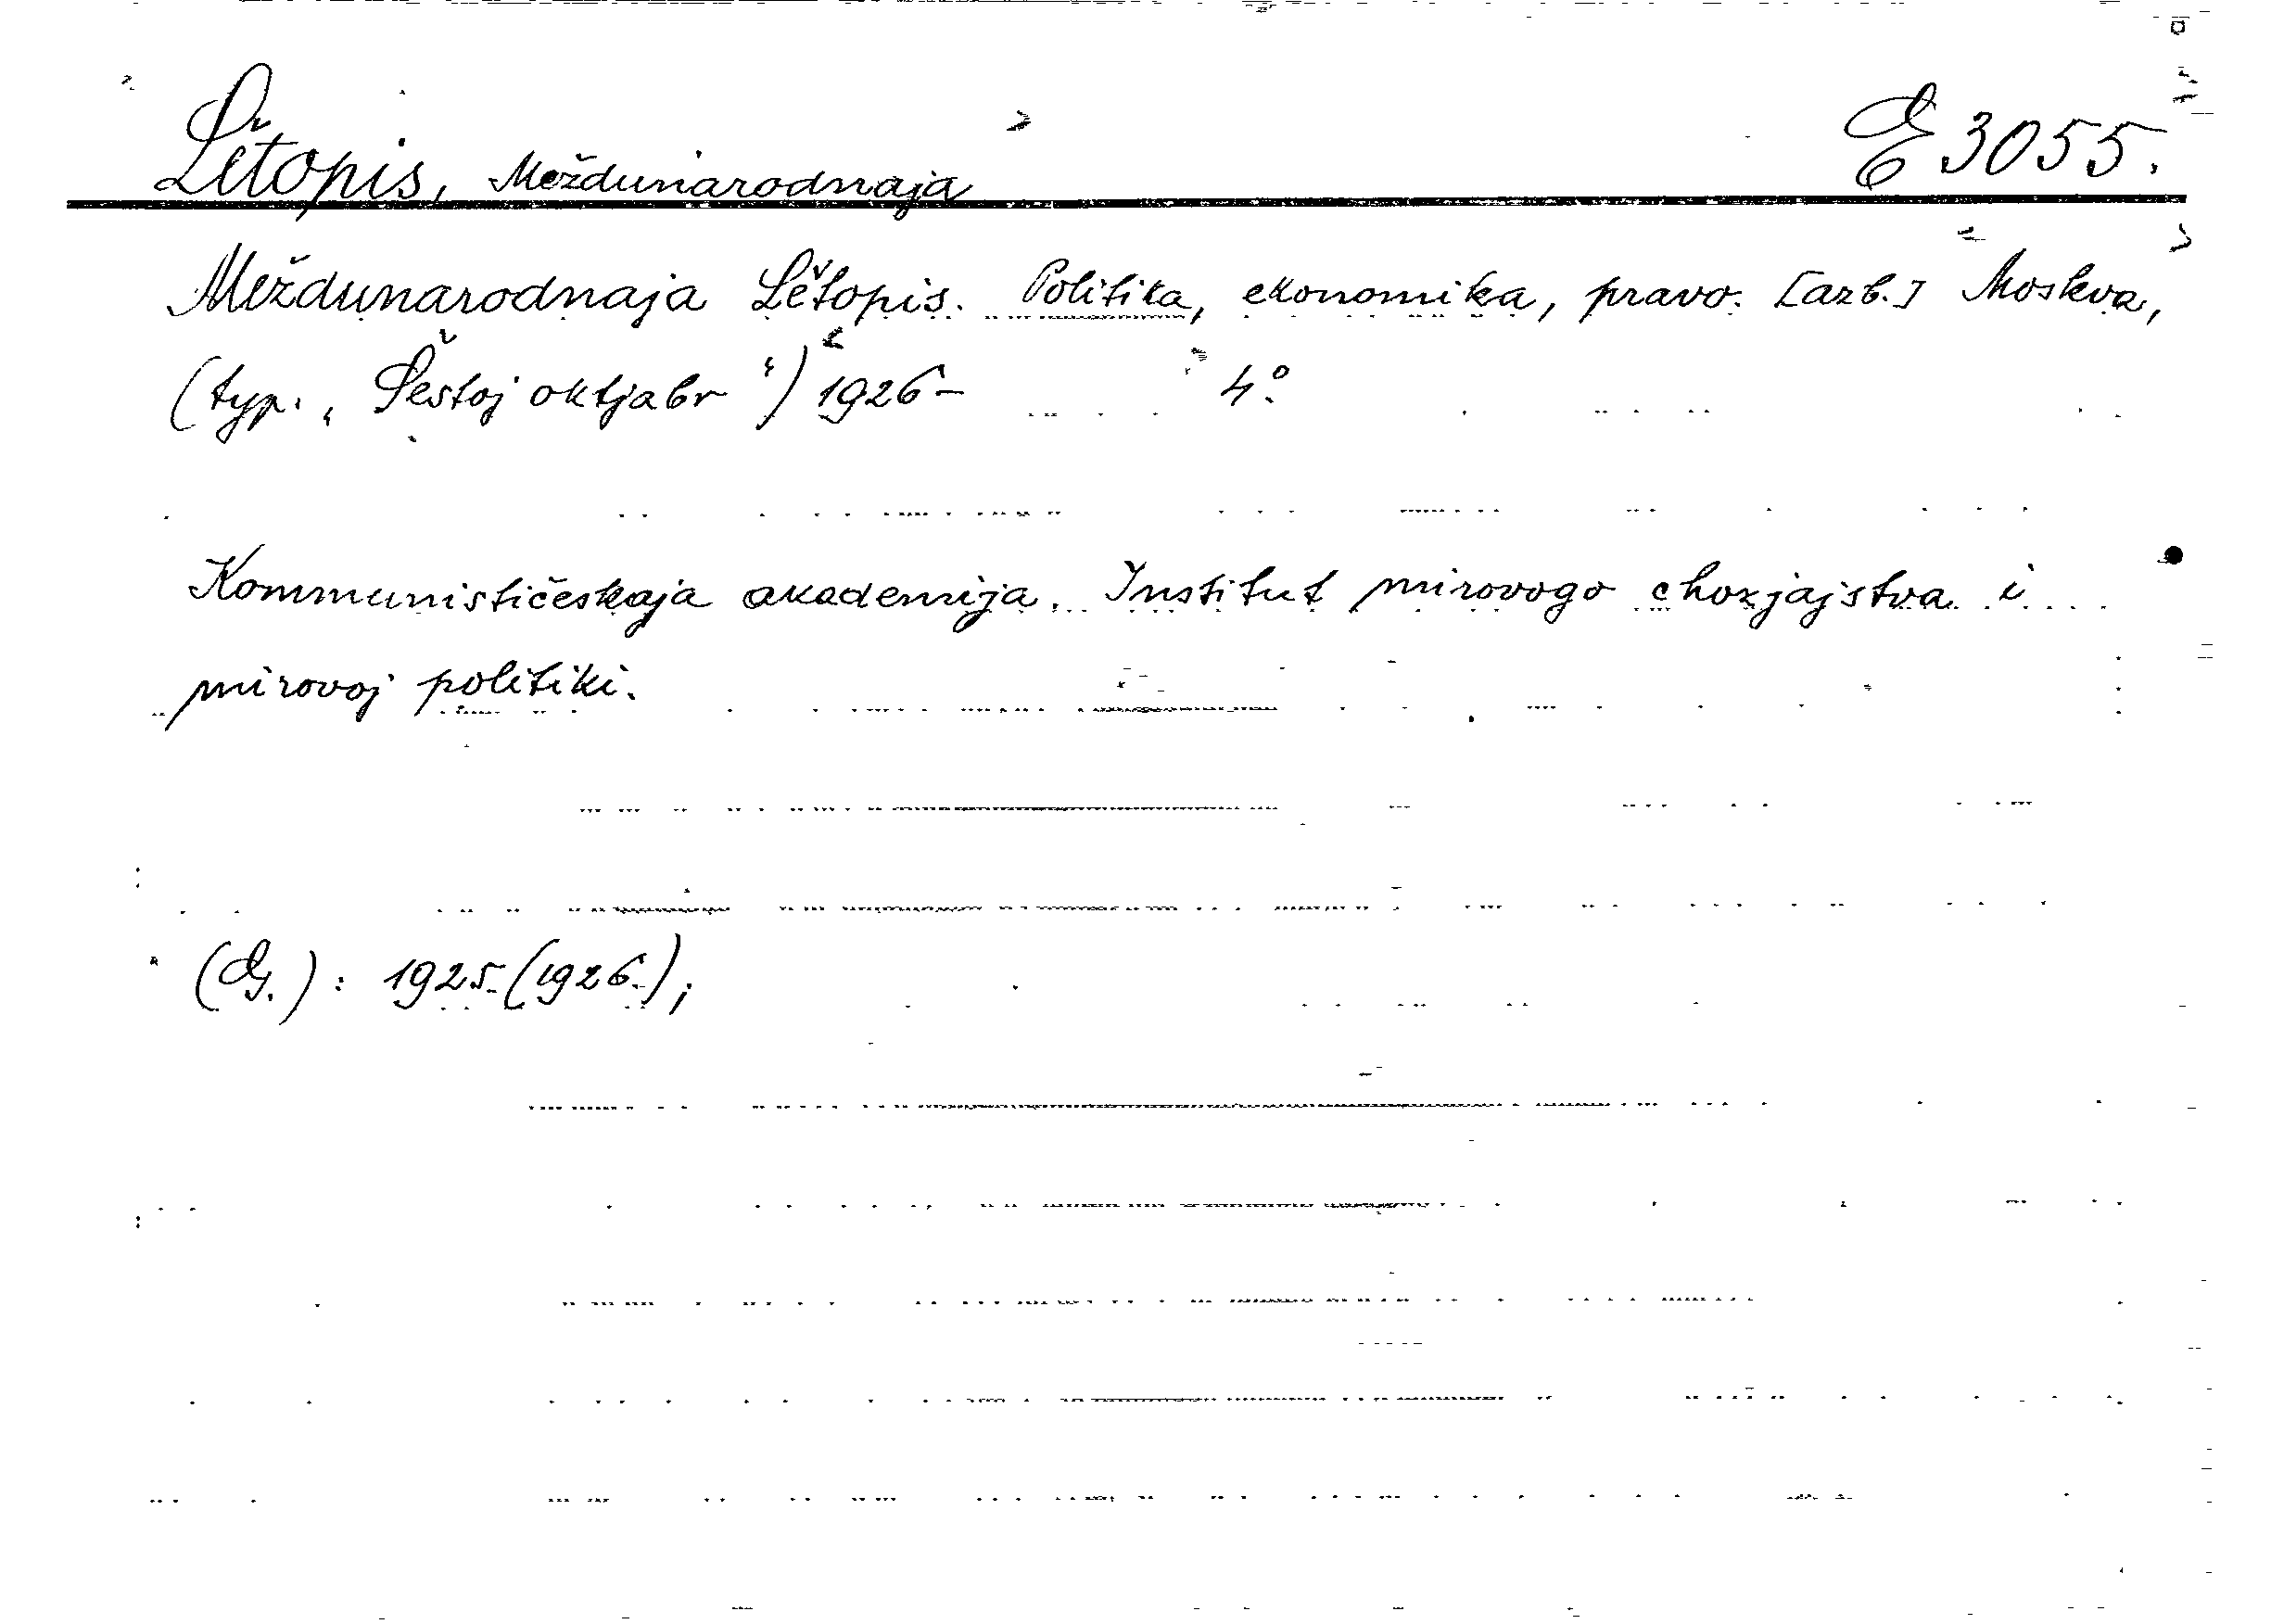 Lětopis, Meždunarodnaja E 3055.
Meždunarodnaja Lětopis. Politika, ekonomika, pravo. [azb.] Moskva,
(typ. „Šestoj oktjabr") 1926– 4°.
Kommunističeskaja akademija. Institut mirovogo chozjajstva i
mirovoj politiki.
(G.): 1925 (1926.);